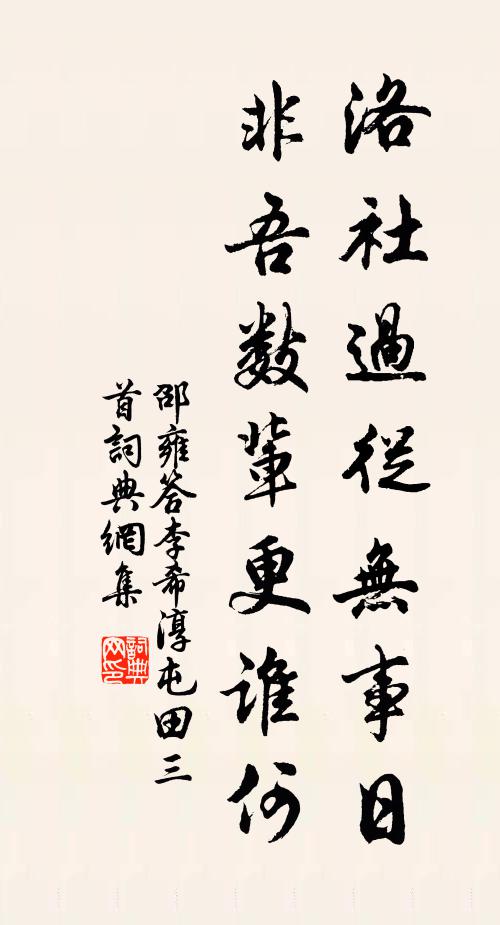 洛社過從無事日
非吾數輩更誰何
邵雍答李希淳屯田三
首詞典網集
詞典
网印